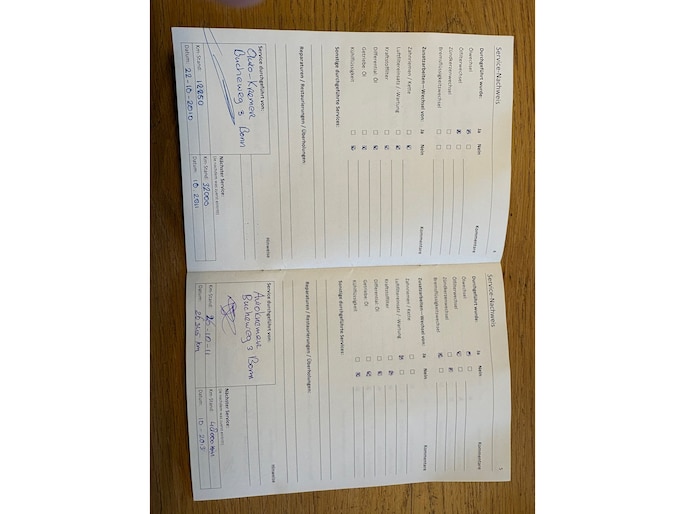 Service-Nachweis
4
Durchgeführt wurde: Ja Nein Kommentare
Ölwechsel
Ölfilterwechsel
Zündkerzenwechsel
Bremsflüssigkeitswechsel
Zusatzarbeiten—Wechsel von: Ja Nein Kommentare
Zahnriemen / Kette
Luftfiltereinsatz / Wartung
Kraftstofffilter
Differential: Öl
Getriebe: Öl
Kühlflüssigkeit
Sonstige durchgeführte Services:
Reparaturen / Restaurierungen / Überholungen:
Service durchgeführt von: Hinweise
Auto-Kremer
Bucheweg 3 Bonn
Nächster Service:
Km-Stand: Km-Stand: 32000
Datum: 22-10-2010 Datum: 10.2011
Service-Nachweis
5
Durchgeführt wurde: Ja Nein Kommentare
Ölwechsel
Ölfilterwechsel
Zündkerzenwechsel
Bremsflüssigkeitswechsel
Zusatzarbeiten—Wechsel von: Ja Nein Kommentare
Zahnriemen / Kette
Luftfiltereinsatz / Wartung
Kraftstofffilter
Differential: Öl
Getriebe: Öl
Kühlflüssigkeit
Sonstige durchgeführte Services:
Reparaturen / Restaurierungen / Überholungen:
Service durchgeführt von: Hinweise
Bucheweg 3 Bonn
Nächster Service:
Km-Stand: 26-10-11 Km-Stand:
Datum: Datum: